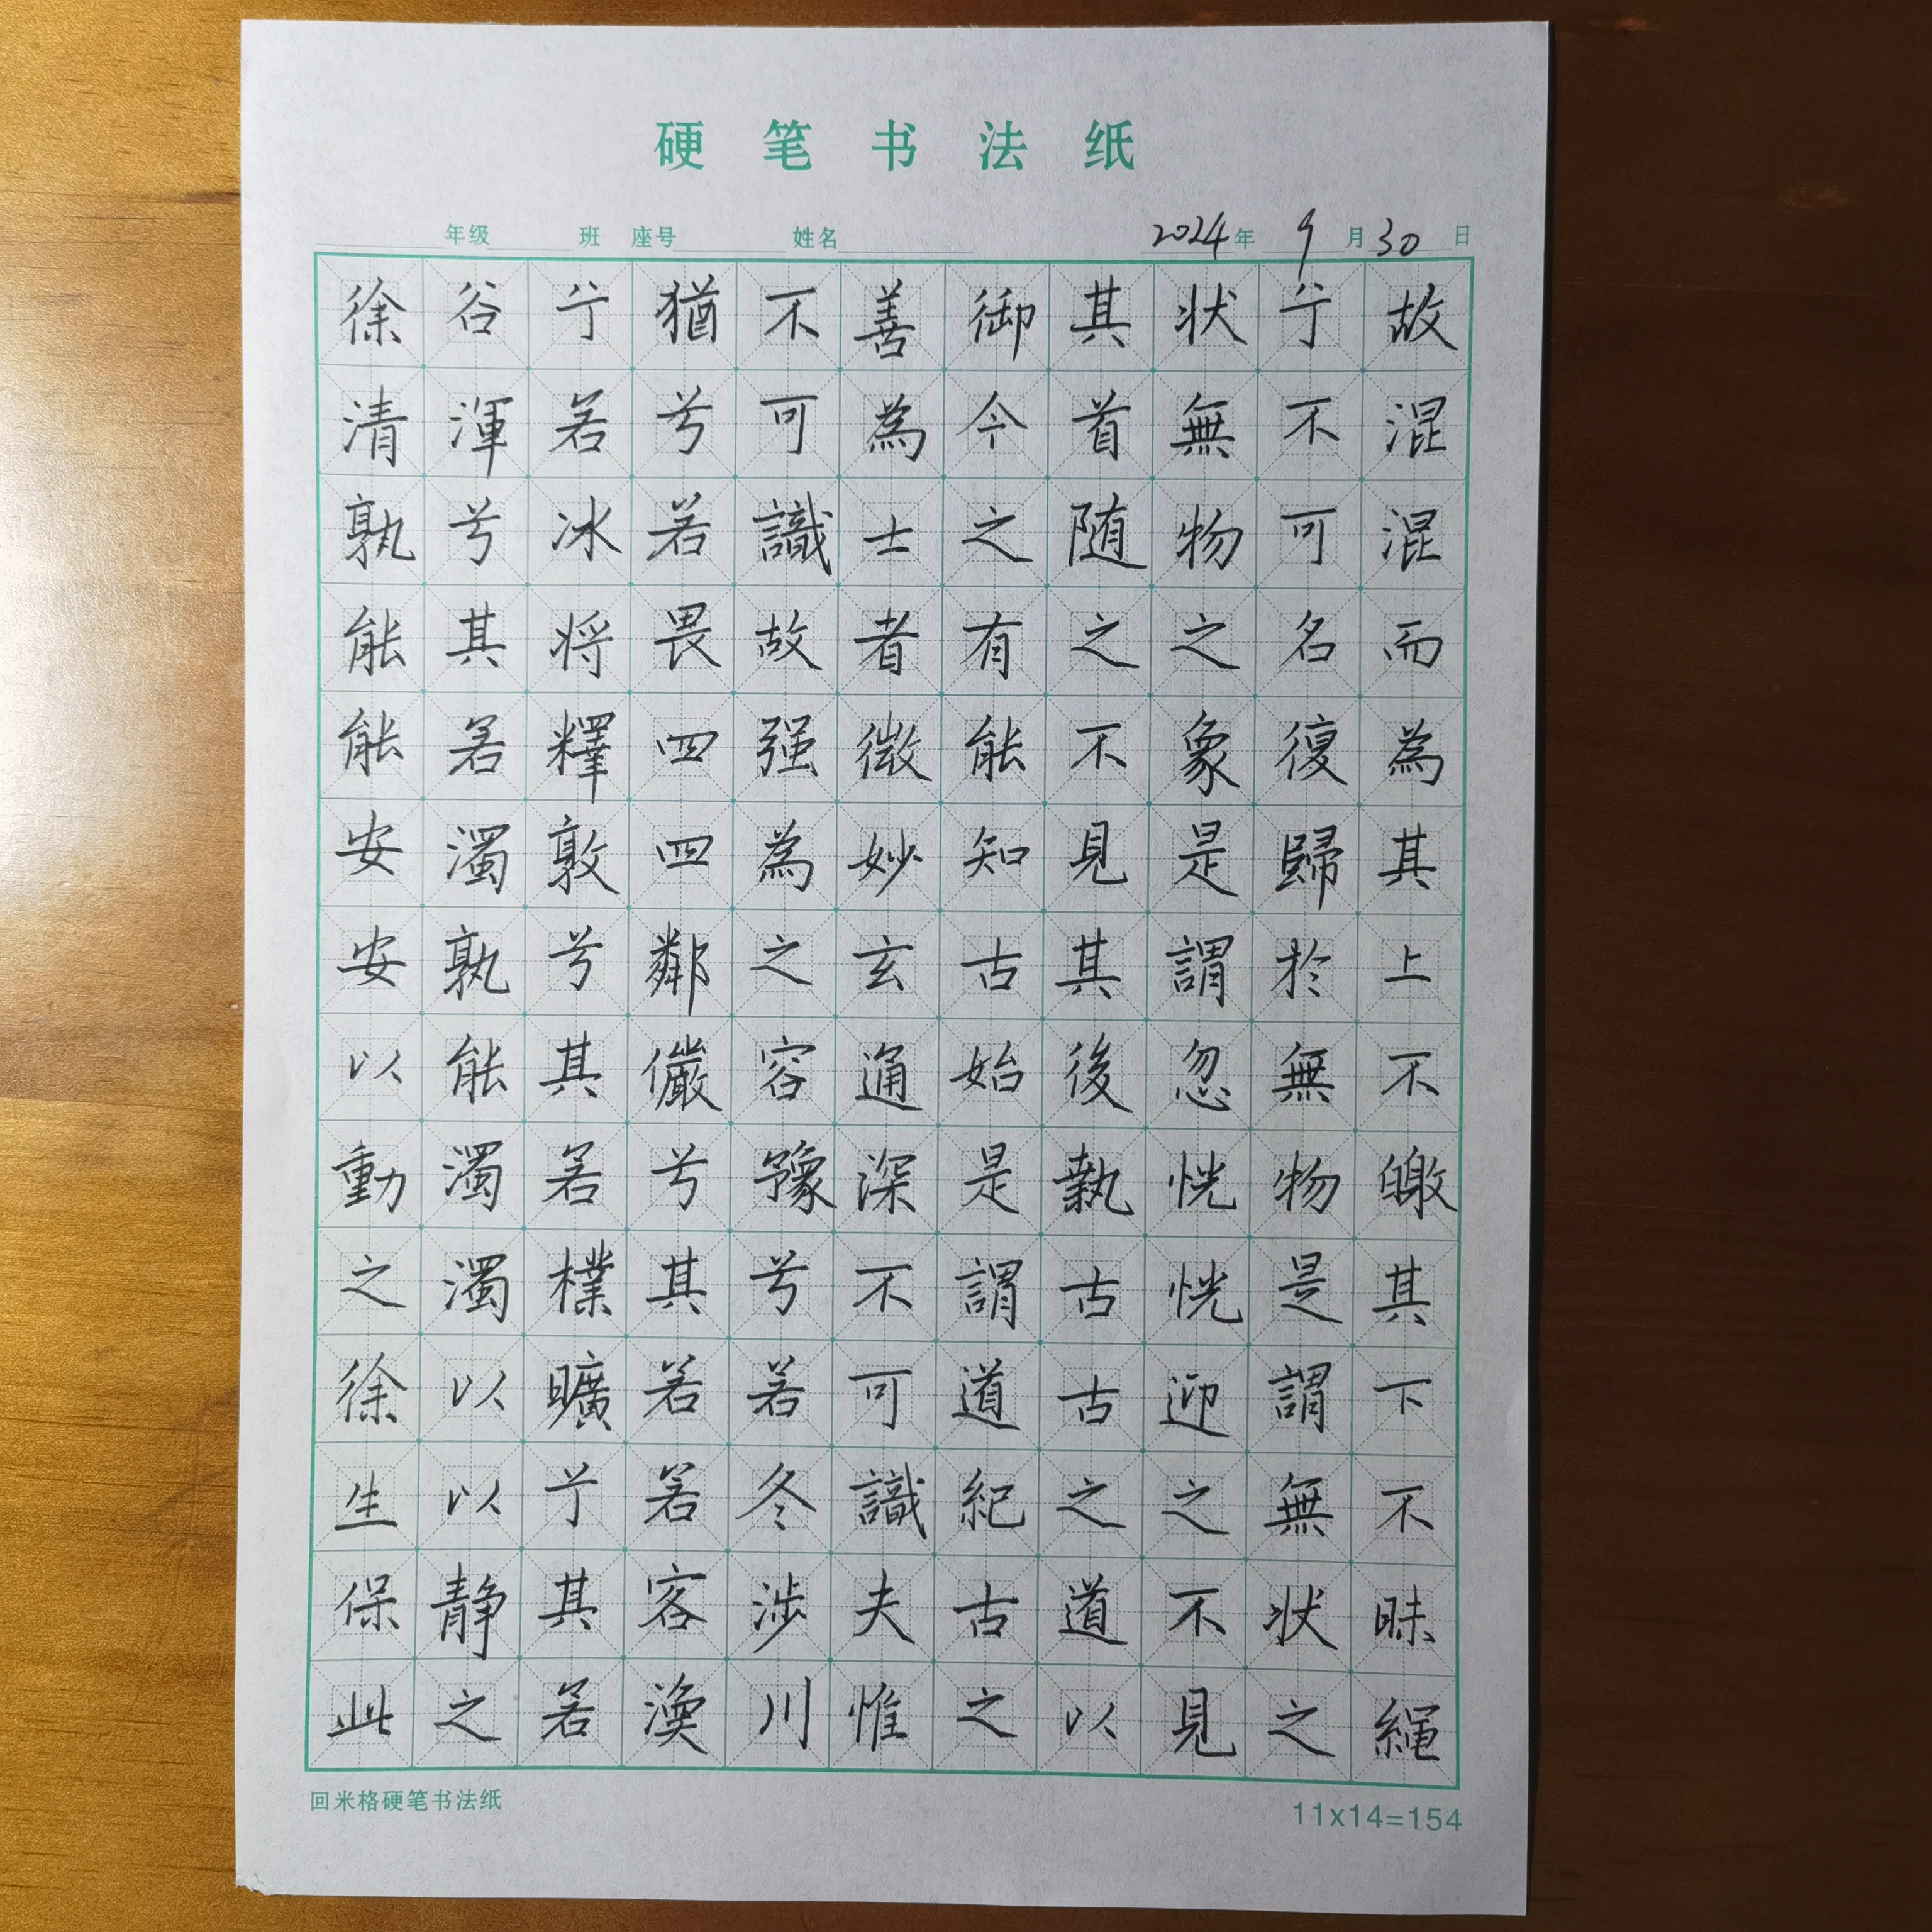 硬笔书法纸
年级 班 座号 姓名 2024年 9月30日
故混混而為其上不皦其下不昧繩
兮不可名復歸於無物是謂無状之
状無物之象是謂忽恍恍迎之不見
其首随之不見其後執古古之道以
御今之有能知古始是謂道紀古之
善為士者微妙玄通深不可識夫惟
不可識故强為之容豫兮若冬涉川
猶兮若畏四四鄰儼兮其若若客渙
兮若冰将釋敦兮其若樸曠兮其若
谷渾兮其若濁孰能濁濁以以静之
徐清孰能能安安以動之徐生保此
回米格硬笔书法纸
11x14=154